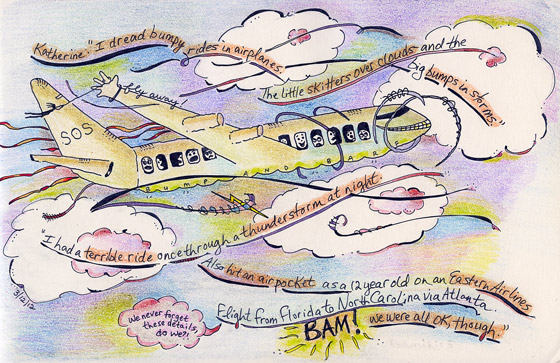 Katherine: "I dread bumpy rides in airplanes.
The little skitters over clouds and the
big bumps in storms.
fly away!
SOS
BUMP AND BARF
"I had a terrible ride once through a thunderstorm at night.
Also hit an air pocket as a 12 year old on an Eastern Airlines
Flight from Florida to North Carolina via Atlanta.
BAM! we were all OK though."
we never forget
these details,
do we?!
3/12/12